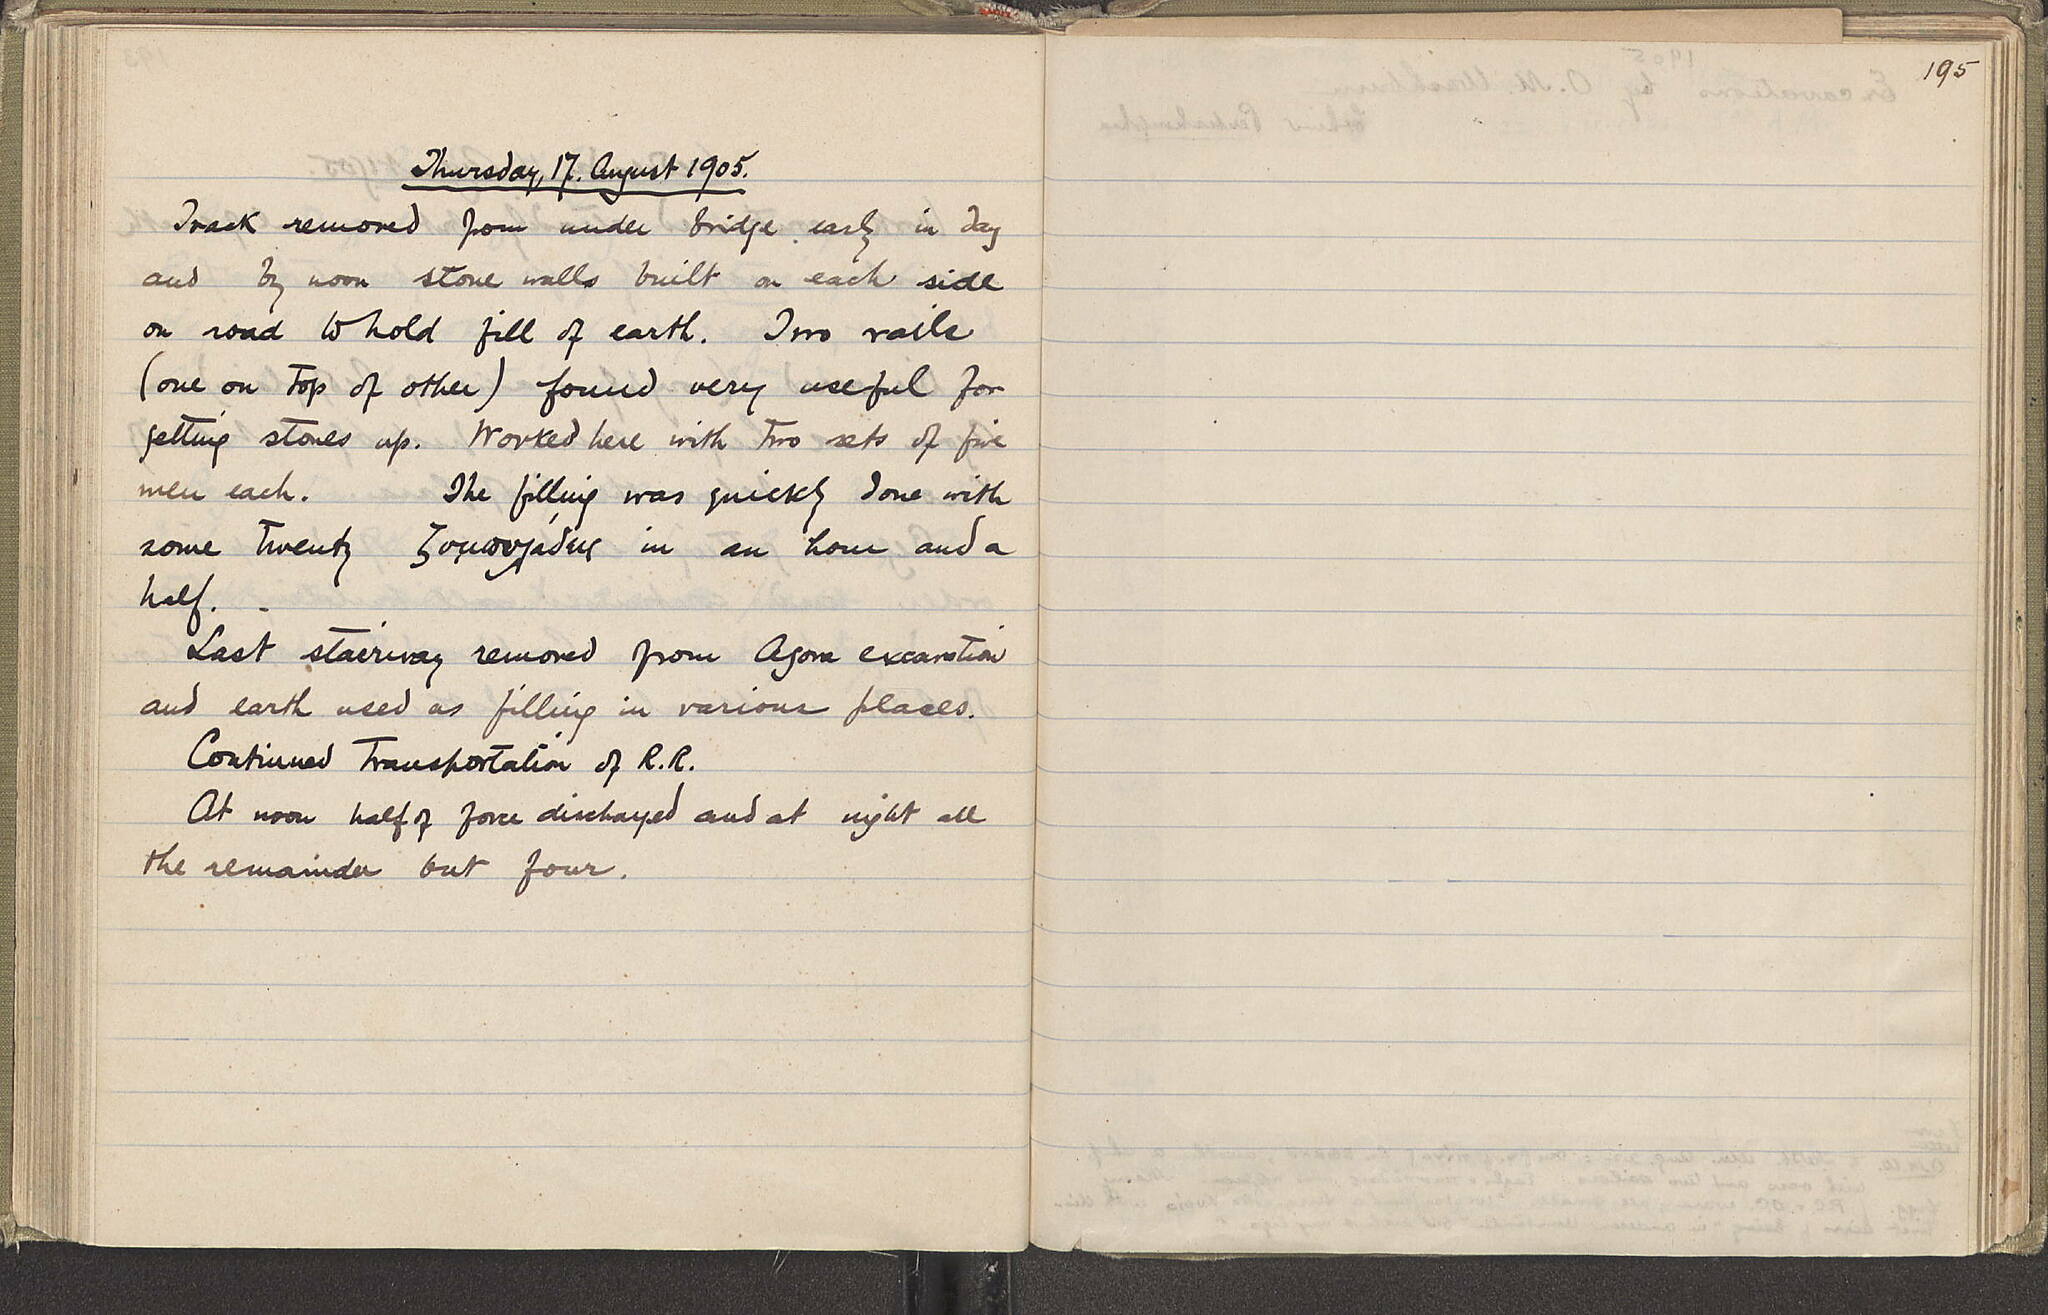 Thursday, 17. August 1905.
Track removed from under bridge early in day
and by noon stone walls built on each side
on road to hold fill of earth. Two rails
(one on top of other) found very useful for
getting stones up. Worked here with two sets of five
men each. The filling was quickly done with
some twenty in an hour and a
half. -
Last stairway removed from Agora excavation
and earth used as filling in various places.
Continued transportation of R.R.
At noon half of force discharged and at night all
the remainder but four.
195
1905
Excavations by O.M. Washburn